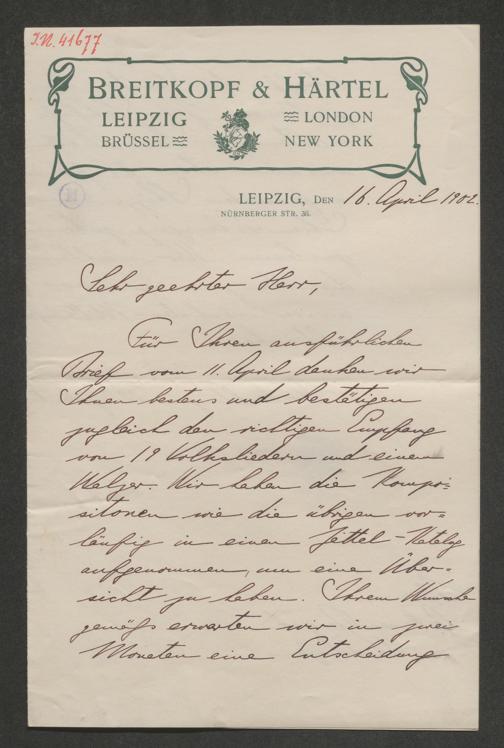 I.N. 41677
BREITKOPF & HÄRTEL
LEIPZIG
BRÜSSEL
LONDON
NEW YORK
LEIPZIG, DEN 16. April 1902.
NÜRNBERGER STR. 36.
Sehr geehrter Herr,
Für Ihren ausführlichen
Brief vom 11. April danken wir
Ihnen bestens und bestätigen
zugleich den richtigen Empfang
von 19 Volksliedern und einem
Walzer. Wir haben die Kompo-
sitonen wie die übrigen vor-
läufig in einen Zettel-Katalog
aufgenommen, um eine Über-
sicht zu haben. Ihrem Wunsche
gemäß erwarten wir in zwei
Monaten eine Entscheidung